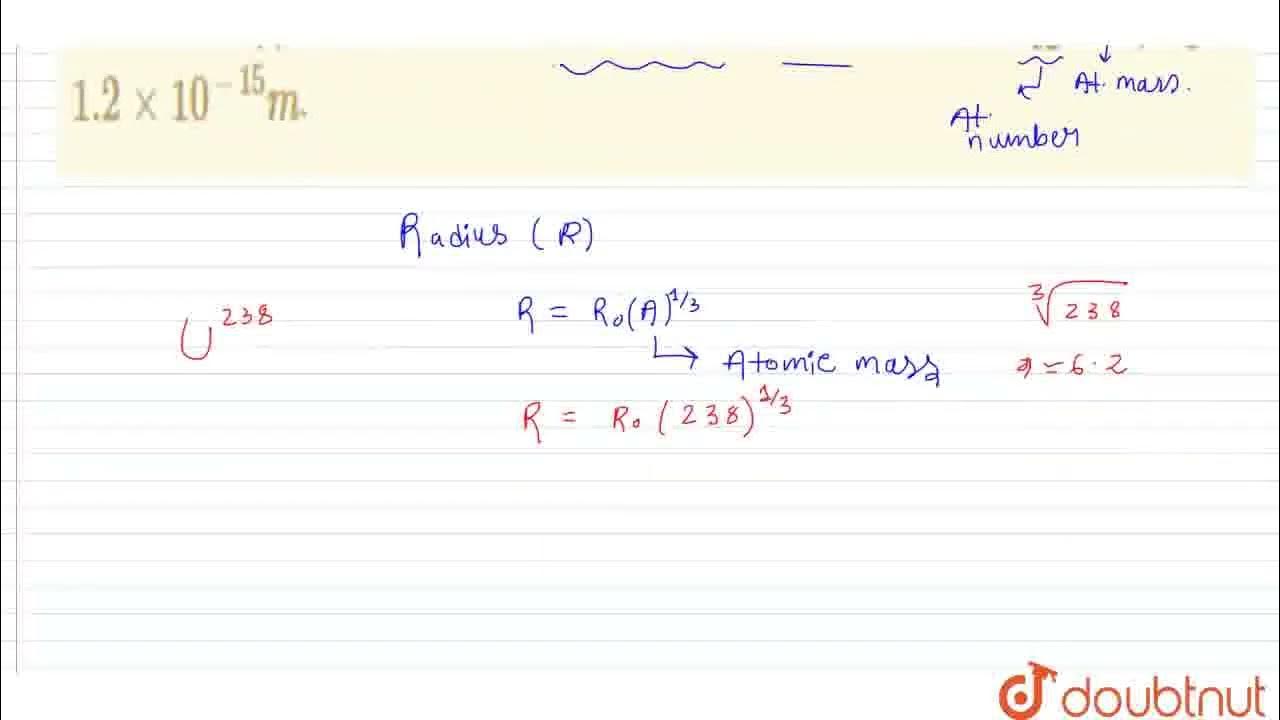 1.2 × 10⁻¹⁵m.
At. mass.
At. number
Radius (R)
U²³⁸
R = R₀(A)^1/3
∛238
→ Atomic mass
= 6.2
R = R₀(238)^1/3
doubtnut